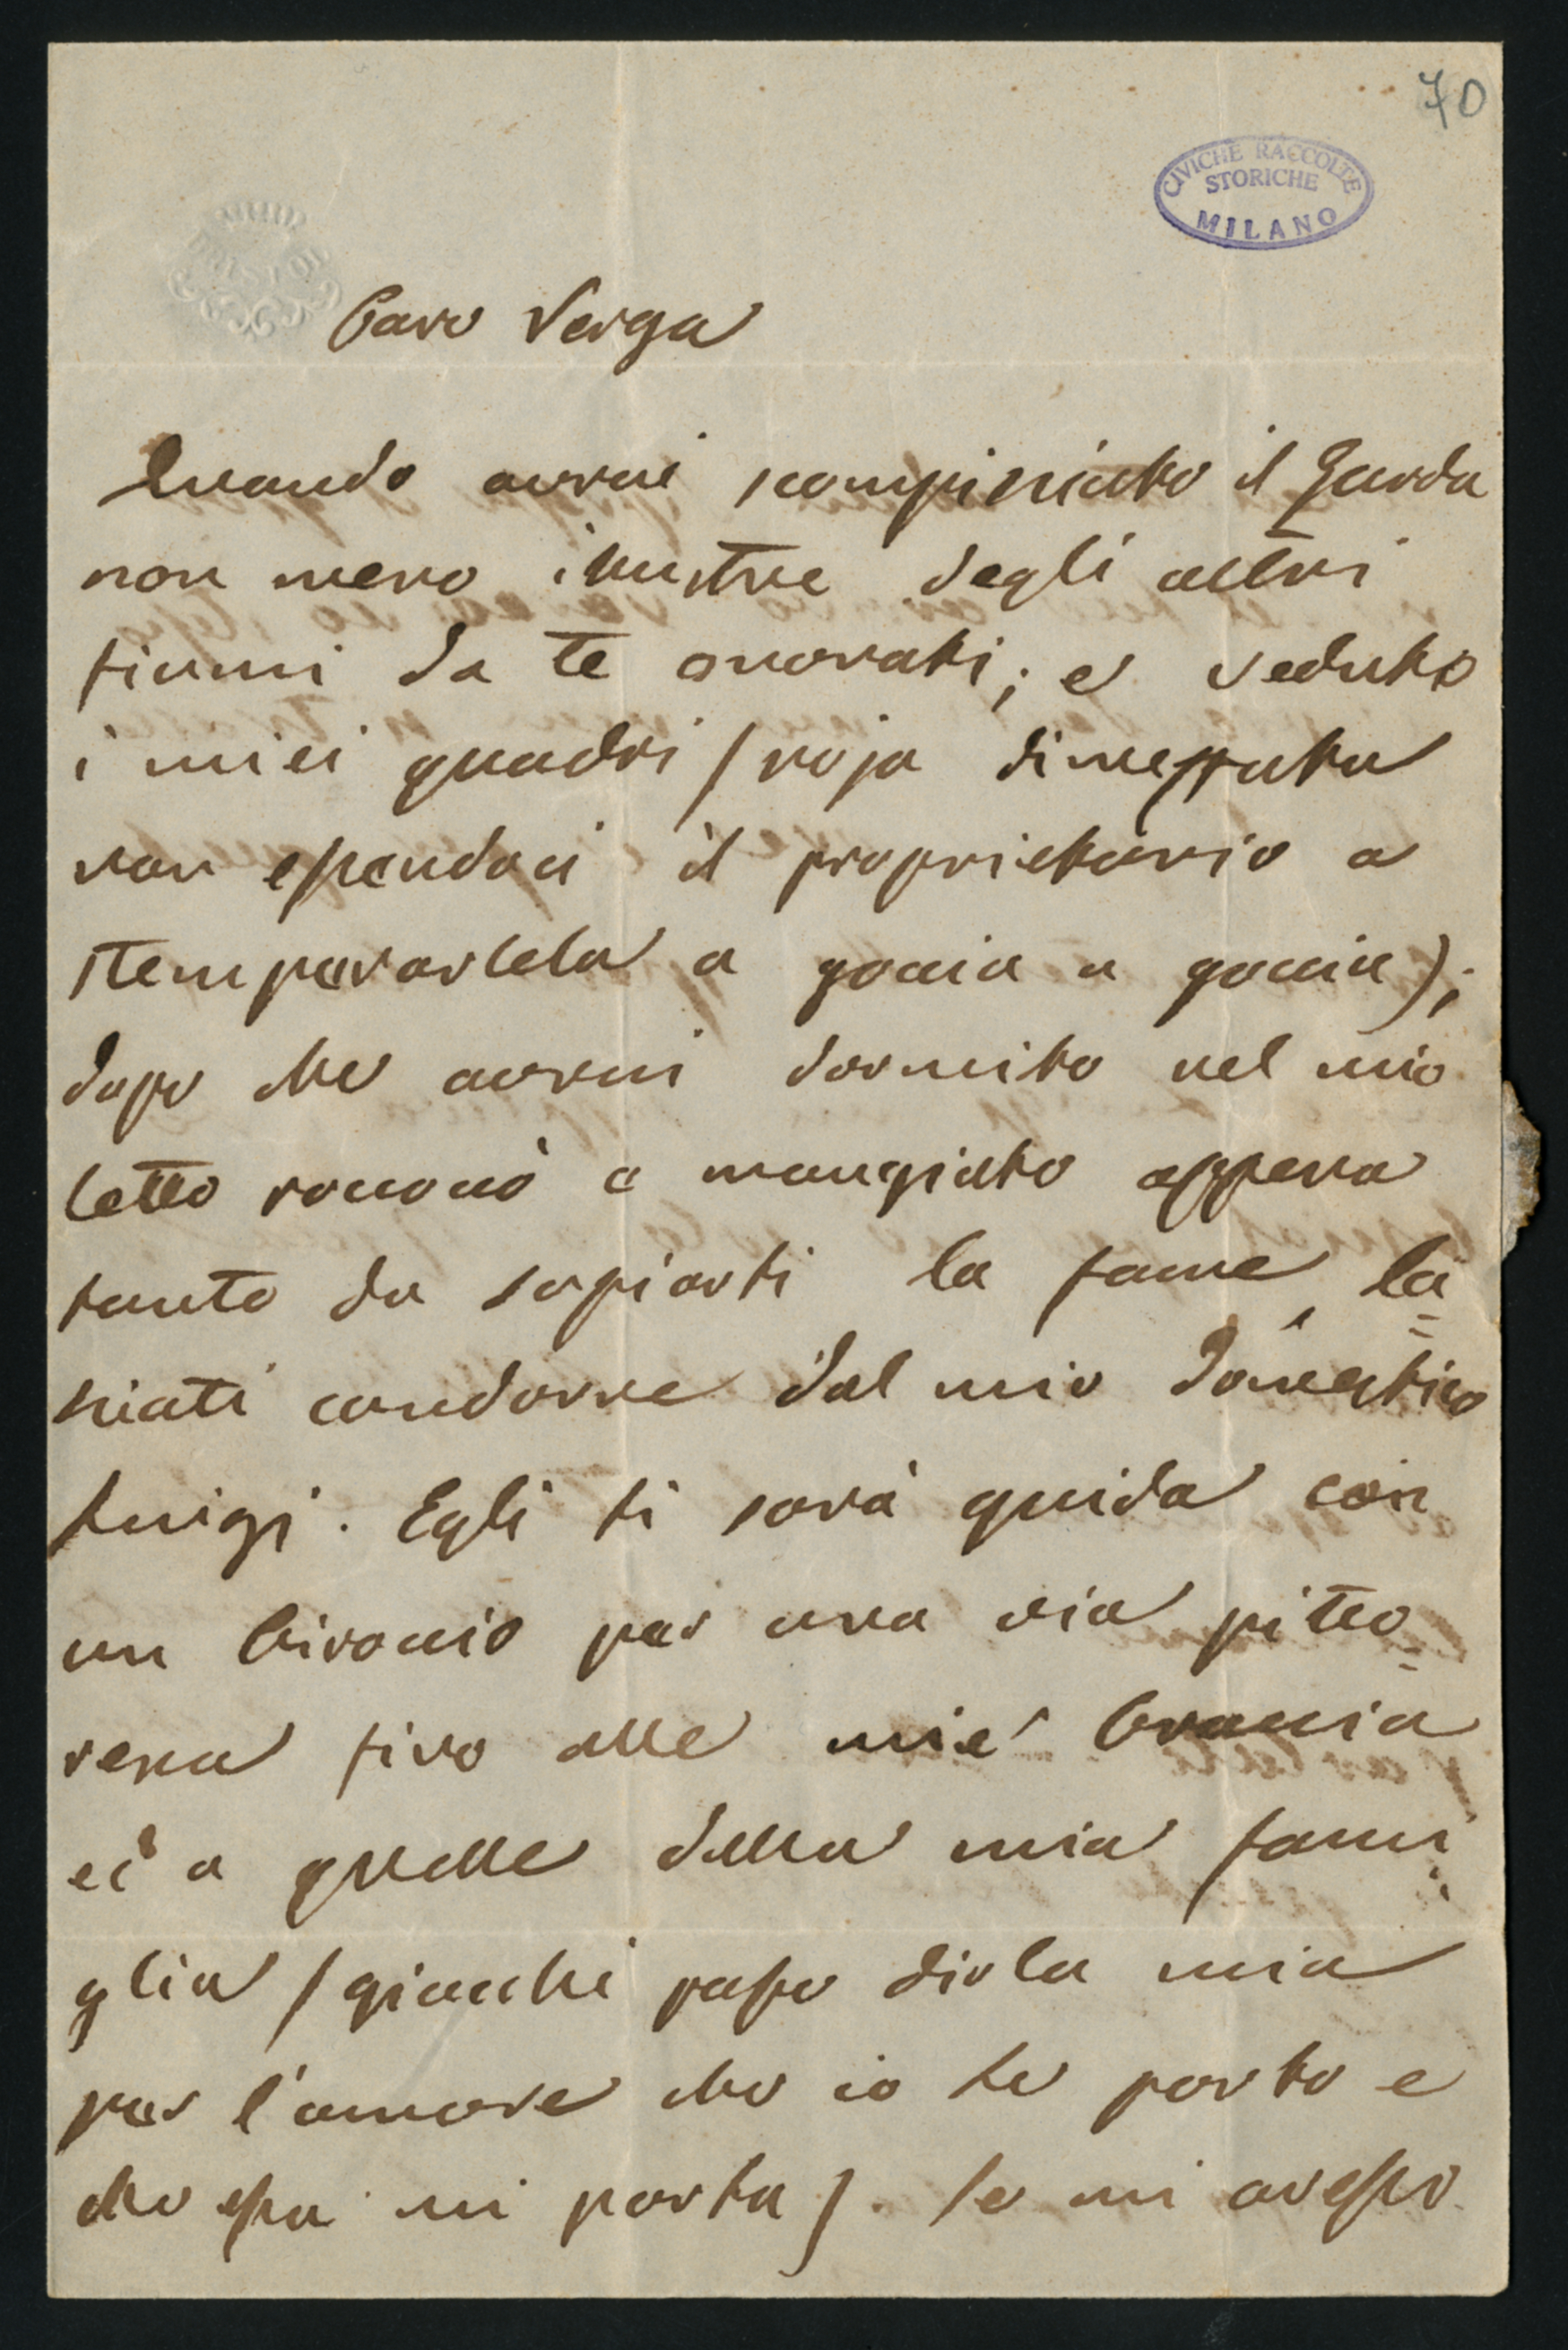 70
CIVICHE RACCOLTE
STORICHE
MILANO
Caro Verga
Quando avrai scompisciato il Garda
non meno illustre degli altri
fiumi da te onorati; e veduto
i miei quadri (noja dimezzata
non essendoci il proprietario a
stemperartela a goccia a goccia);
dopo che avrai dormito nel mio
letto rococò e mangiato appena
tanto da sopirti la fame, la=
sciati condurre dal mio domestico
Luigi. Egli ti sarà guida con
un biroccio per una via pitto=
resca fino alle mie braccia
ed a quelle della mia fami=
glia (giacchè posso dirla mia
per l'amore che io le porto e
che essa mi porta). Se mi avesse